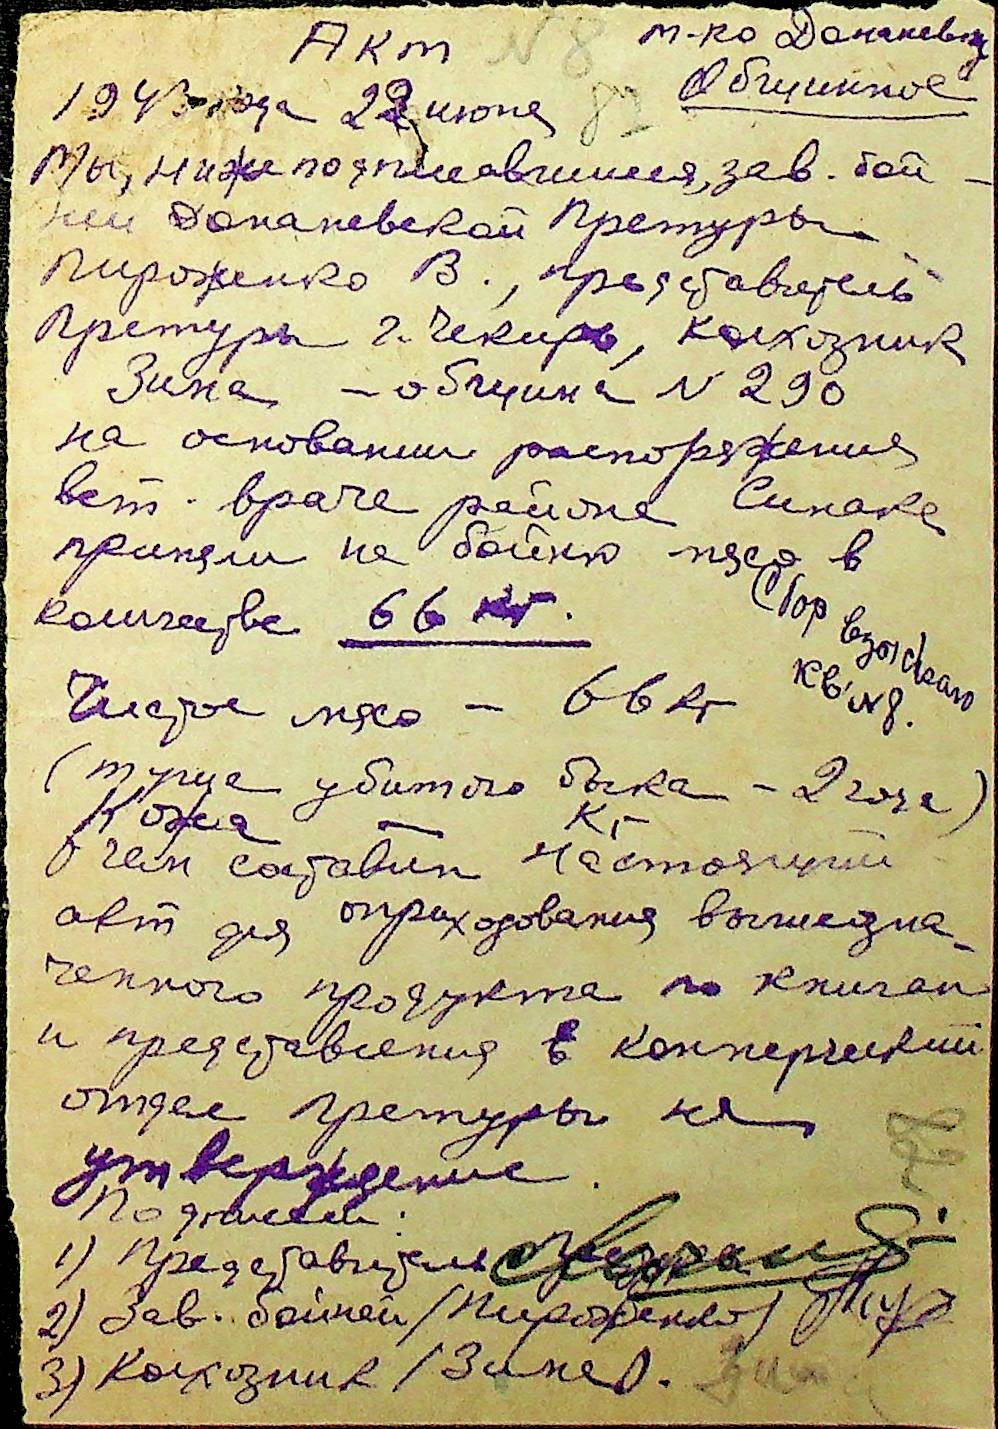 Акт № 8 м-ко Доманевку
Общинное
1943 года 22 июня 87
Мы, нижеподписавшиеся, зав. бой-
ни Доманевской Претуры
Пироженко В., представитель
Претуры г. Чекирь, колхозник
Зима – община № 290
на основании распоряжения
вет. врача района Симака
приняли на бойню мясо в
количестве 66 кг.
Сбор взыскано
кв. № 8.
Чистое мясо – 66 кг
(туша убитого быка – 2 года)
Кожа – кг
О чем составлен настоящий
акт для оприходования вышеозна-
ченного продукта по книгам
и представления в коммерческий
отдел претуры на
утверждение.
Подписи:
1) Представитель претуры
2) Зав. бойней /Пироженко/
3) Колхозник /Зима/.